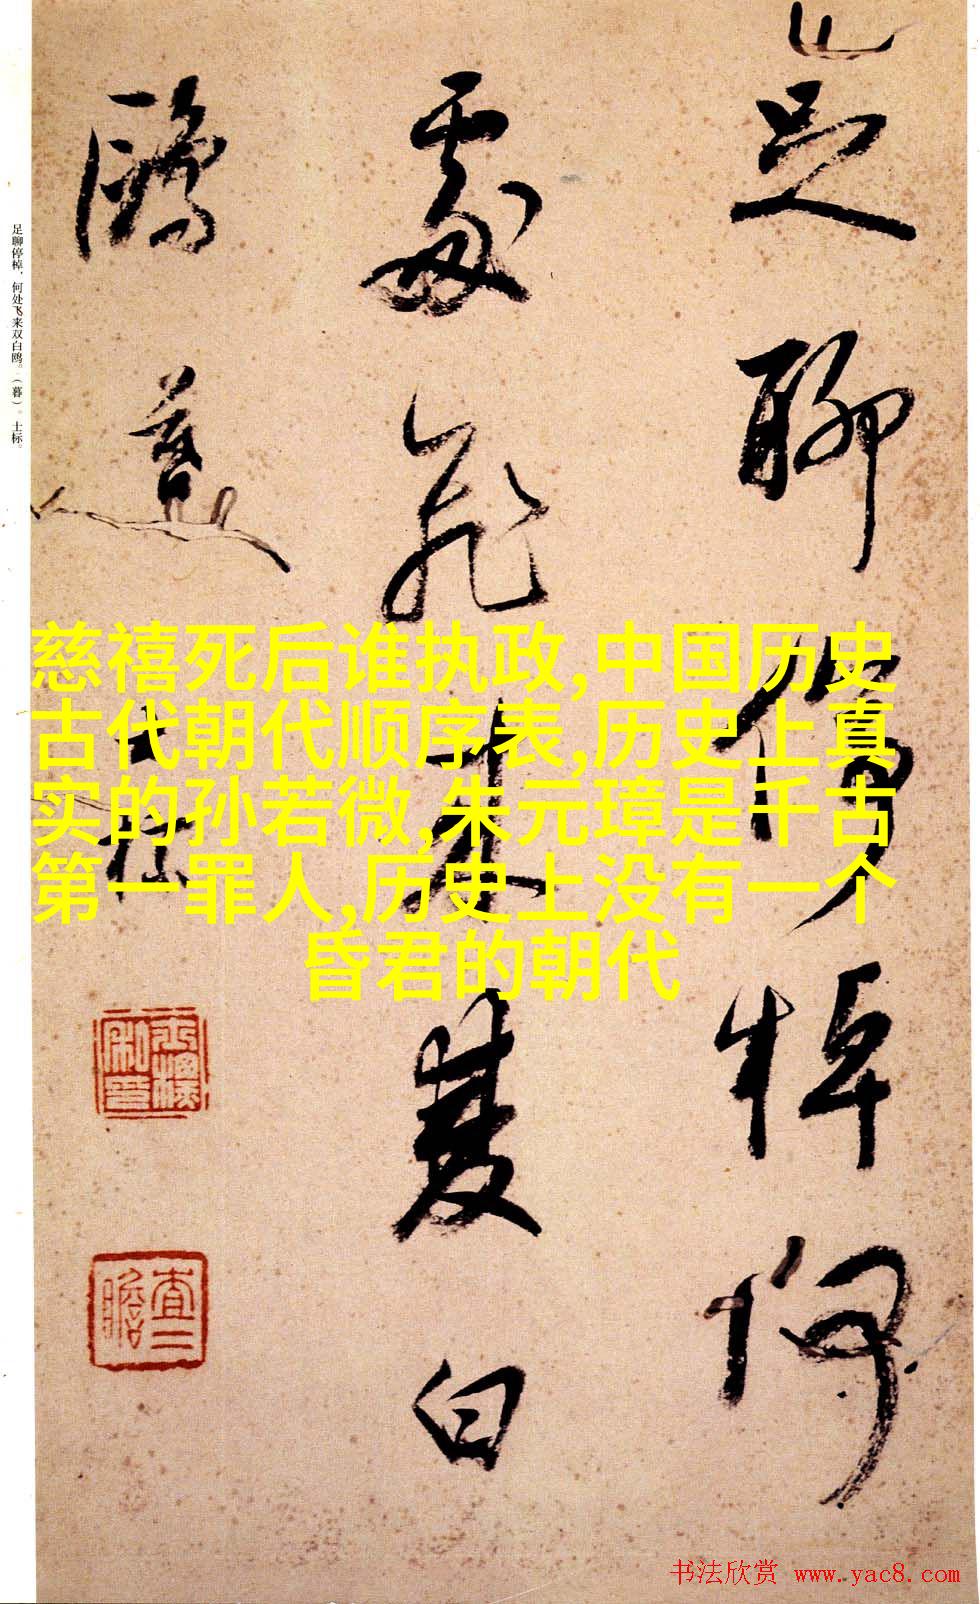 足聊停棹何
處飛來雙白
鷗暮
士標
足聊停棹，何处飞来双白鸥。（暮）。士标。
慈禧死后谁执政,中国历史
古代朝代顺序表,历史上真
实的孙若微,朱元璋是千古
第一罪人,历史上没有一个
昏君的朝代
查二
瞻
书法欣赏 www.yac8.com